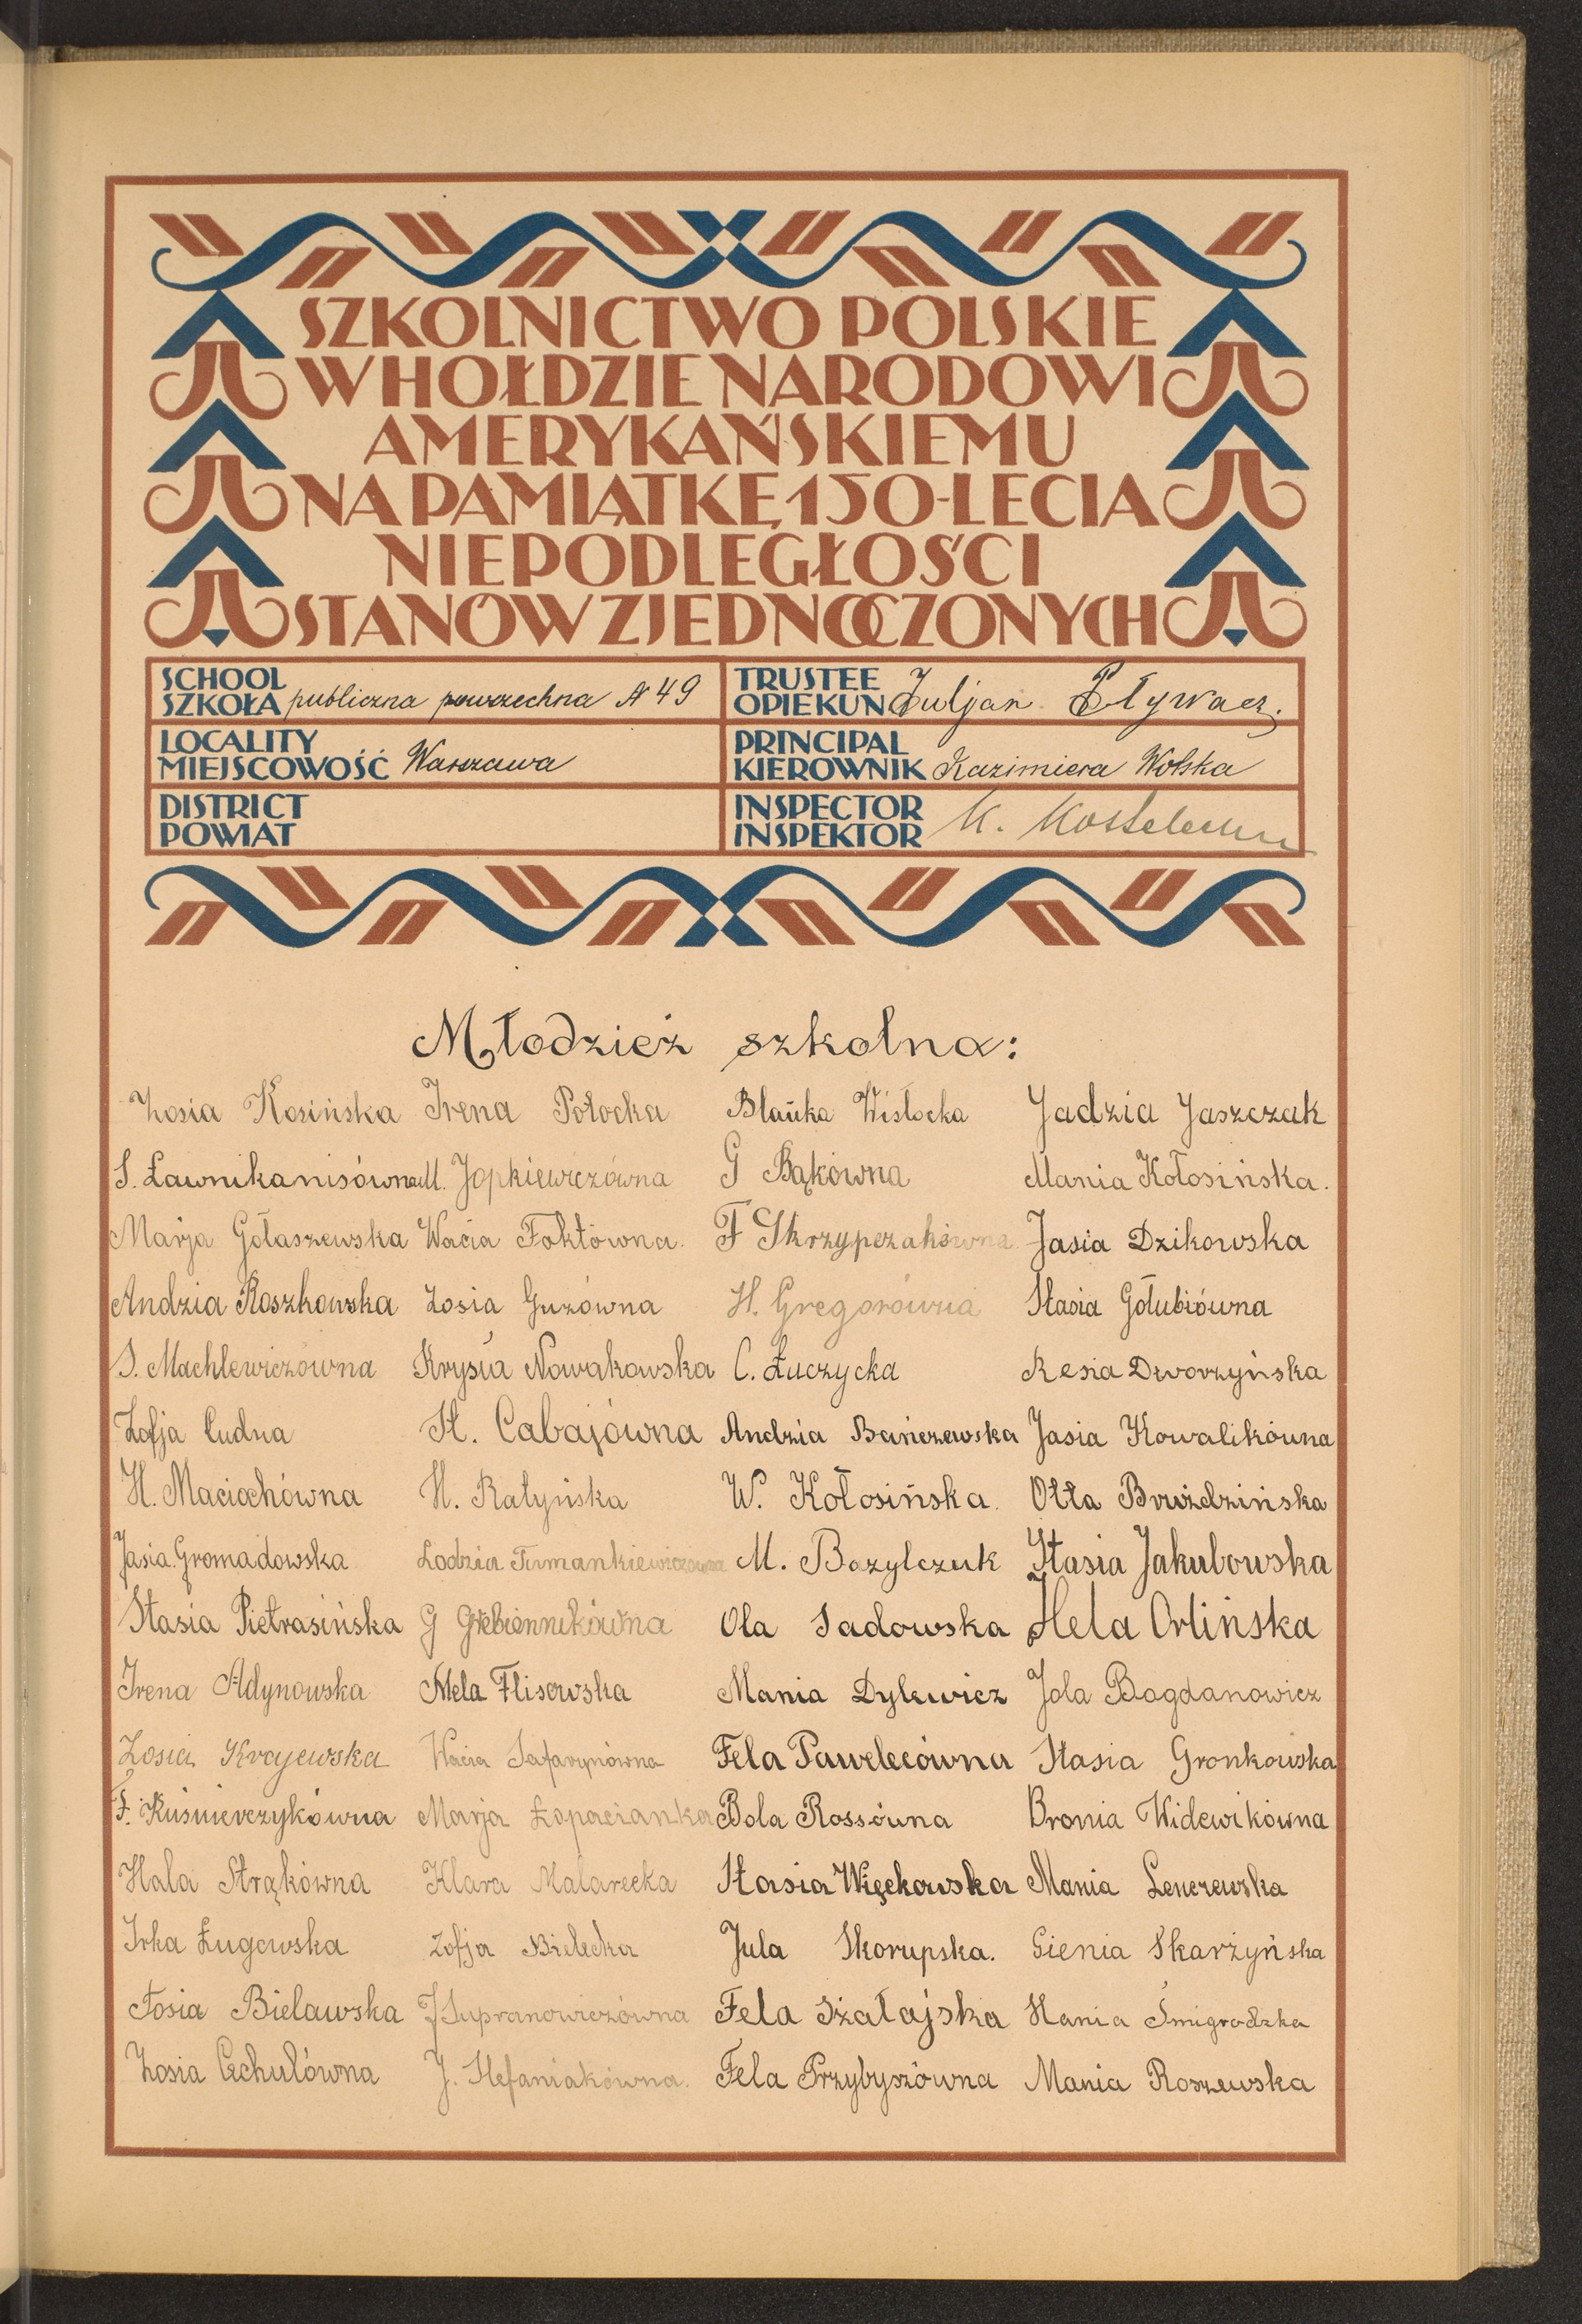 SZKOLNICTWO POLSKIE
W HOŁDZIE NARODOWI
AMERYKAŃSKIEMU
NA PAMIĄTKĘ 150-LECIA
NIEPODLEGŁOŚCI
STANÓW ZJEDNOCZONYCH
SCHOOL
SZKOŁA publiczna powszechna № 49
TRUSTEE
OPIEKUN Juljan Pływacz.
LOCALITY
MIEJSCOWOŚĆ Warszawa
PRINCIPAL
KIEROWNIK Kazimiera Wolska
DISTRICT
POWIAT
INSPECTOR
INSPEKTOR K.
Młodzież szkolna:
Zosia Kosińska Irena Potocka Blanka Wisłocka Jadzia Jaszczak
S. Ławnikanisówna M. Jopkiewiczówna G Bąkówna Mania Kołosińska.
Marja Gołaszewska Wacia Foktówna. F Skrzypczakówna Jasia Dzikowska
Andzia Roszkowska Zosia Guzówna H. Gregorówna Stasia Gołubiówna
S. Machlewiczówna Krysia Nowakowska C. Łuczycka Resia Dworzyńska
Zofja Cudna H. Cabajówna Andzia Bańczewska Jasia Kowalikówna
H. Maciochówna H. Ratyńska W. Kołosińska. Olta Bruździńska
Jasia Gromadowska Lodzia Tumankiewiczówna M. Bazylczuk Stasia Jakubowska
Stasia Pietrasińska G Grebiennikówna Ola Sadowska Hela Orlińska
Irena Adynowska Mela Flisowska Mania Dylewicz Jola Bogdanowicz
Zosia Krajewska Wacia Safarynówna Fela Pawelecówna Stasia Gronkowska
F. Kuśnierczykówna Marja Łopacianka Bola Rossówna Bronia Widewikówna
Hala Strąkówna Klara Malarecka Stasia Więckowska Mania Lenczewska
Irka Ługowska Zofja Bielecka Jula Skorupska. Gienia Skarżyńska
Tosia Bielawska J Supranowiczówna Fela Szałajska Hania Śmigrodzka
Zosia Cechulówna J. Stefaniakówna. Fela Przybyszówna Mania Roszewska